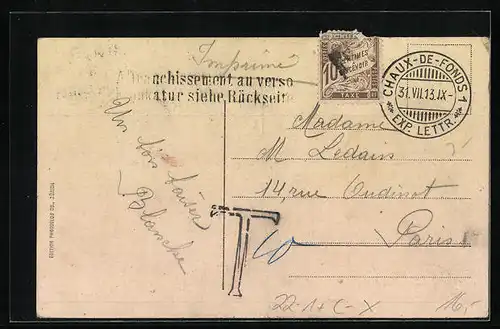 Imprimé
Affranchissement au verso
Frankatur siehe Rückseite
10 CENTIMES
A PERCEVOIR
TAXE
CHAUX-DE-FONDS 1
31.VII.13.IX-
EXP. LETTR.
Un bon baiser
Blanche
Madame
M Ledain
14, rue Oudinot
Paris
T
10
22-1+C-X
16,-